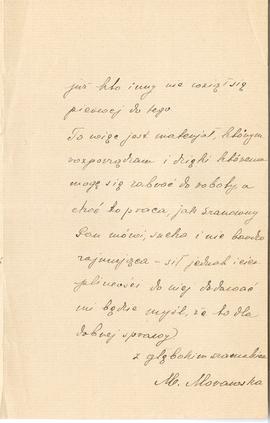 już kto inny nie wziął się
pierwej do tego.
To więc jest materjał, którym
rozporządzam i dzięki któremu
mogę się zabrać do roboty a
choć to praca, jak Szanowny
Pan mówi, sucha i nie bardzo
zajmująca – sił jednak i cier-
pliwości do niej dodawać
mi będzie myśl, że to dla
dobrej sprawy
z głębokim szacunkiem
M. Morawska